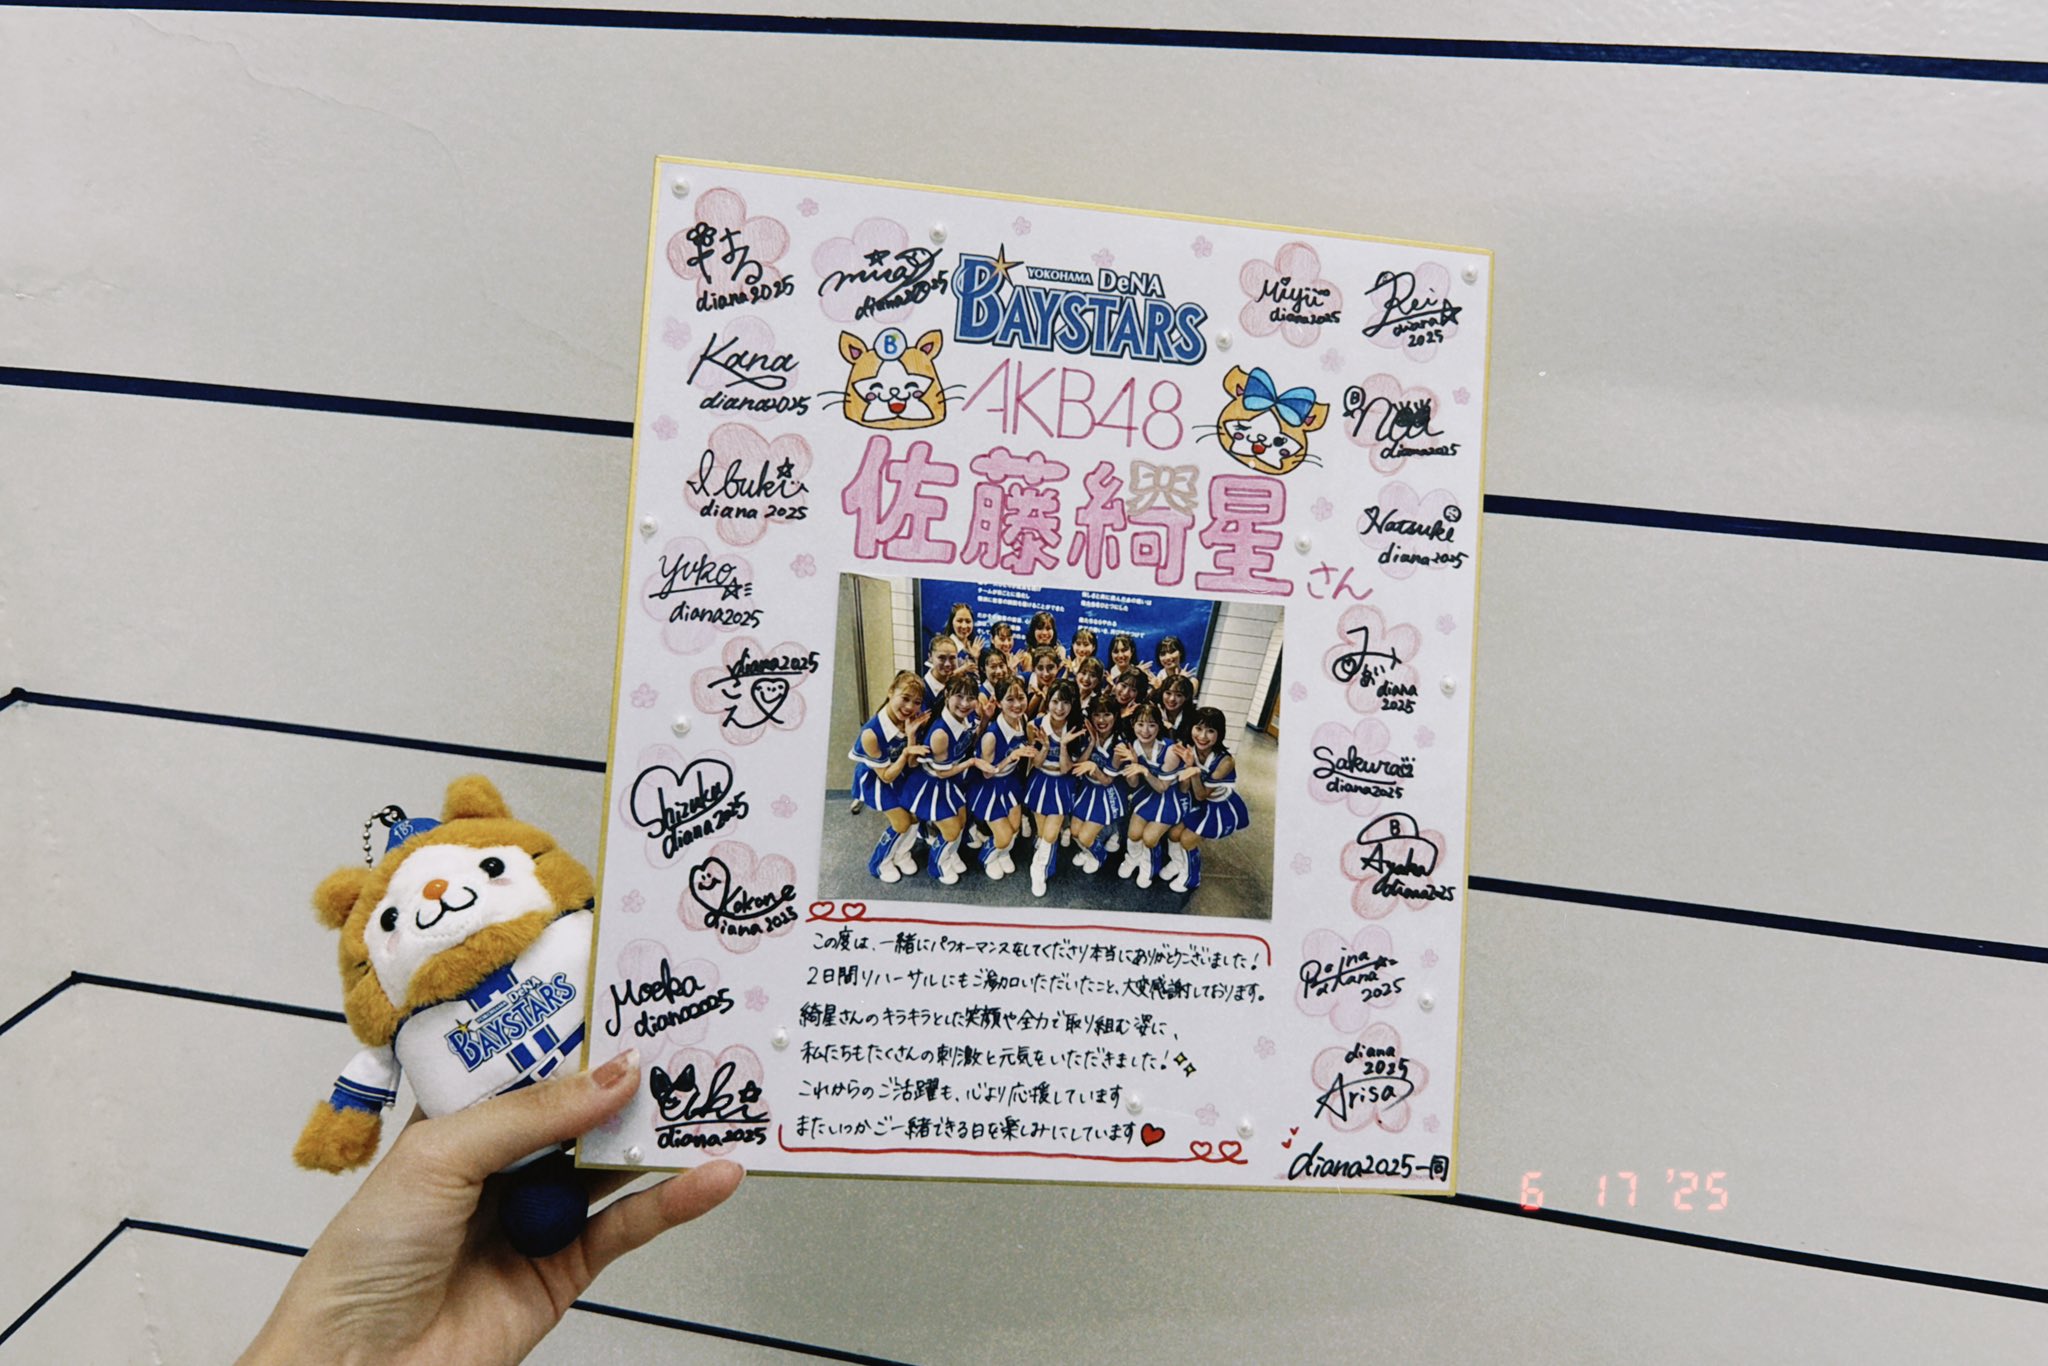 はる
diana2025
mirai
diana2025
YOKOHAMA DeNA
BAYSTARS
Miyū
diana2025
Rei
diana
2025
Kana
diana2025
B
AKB48
B
noa
diana2025
Ibuki
diana 2025
佐藤綺星さん
Natsuki
diana2025
yuko
diana2025
diana2025
diana
2025
Sakura
diana2025
Shizuku
diana2025
B
Ayaka
diana2025
Kokone
diana2025
この度は、一緒にパフォーマンスをしてくださり本当にありがとうございました!
2日間リハーサルにもご参加いただいたこと、大変感謝しております。
綺星さんのキラキラとした笑顔や全力で取り組む姿に、
私たちもたくさんの刺激と元気をいただきました!
これからのご活躍も、心より応援しています
またいつかご一緒できる日を楽しみにしています
Moeka
diana2025
2025
diana
2025
Arisa
diana2025
diana2025一同
YOKOHAMA DeNA
BAYSTARS
6 17 '25